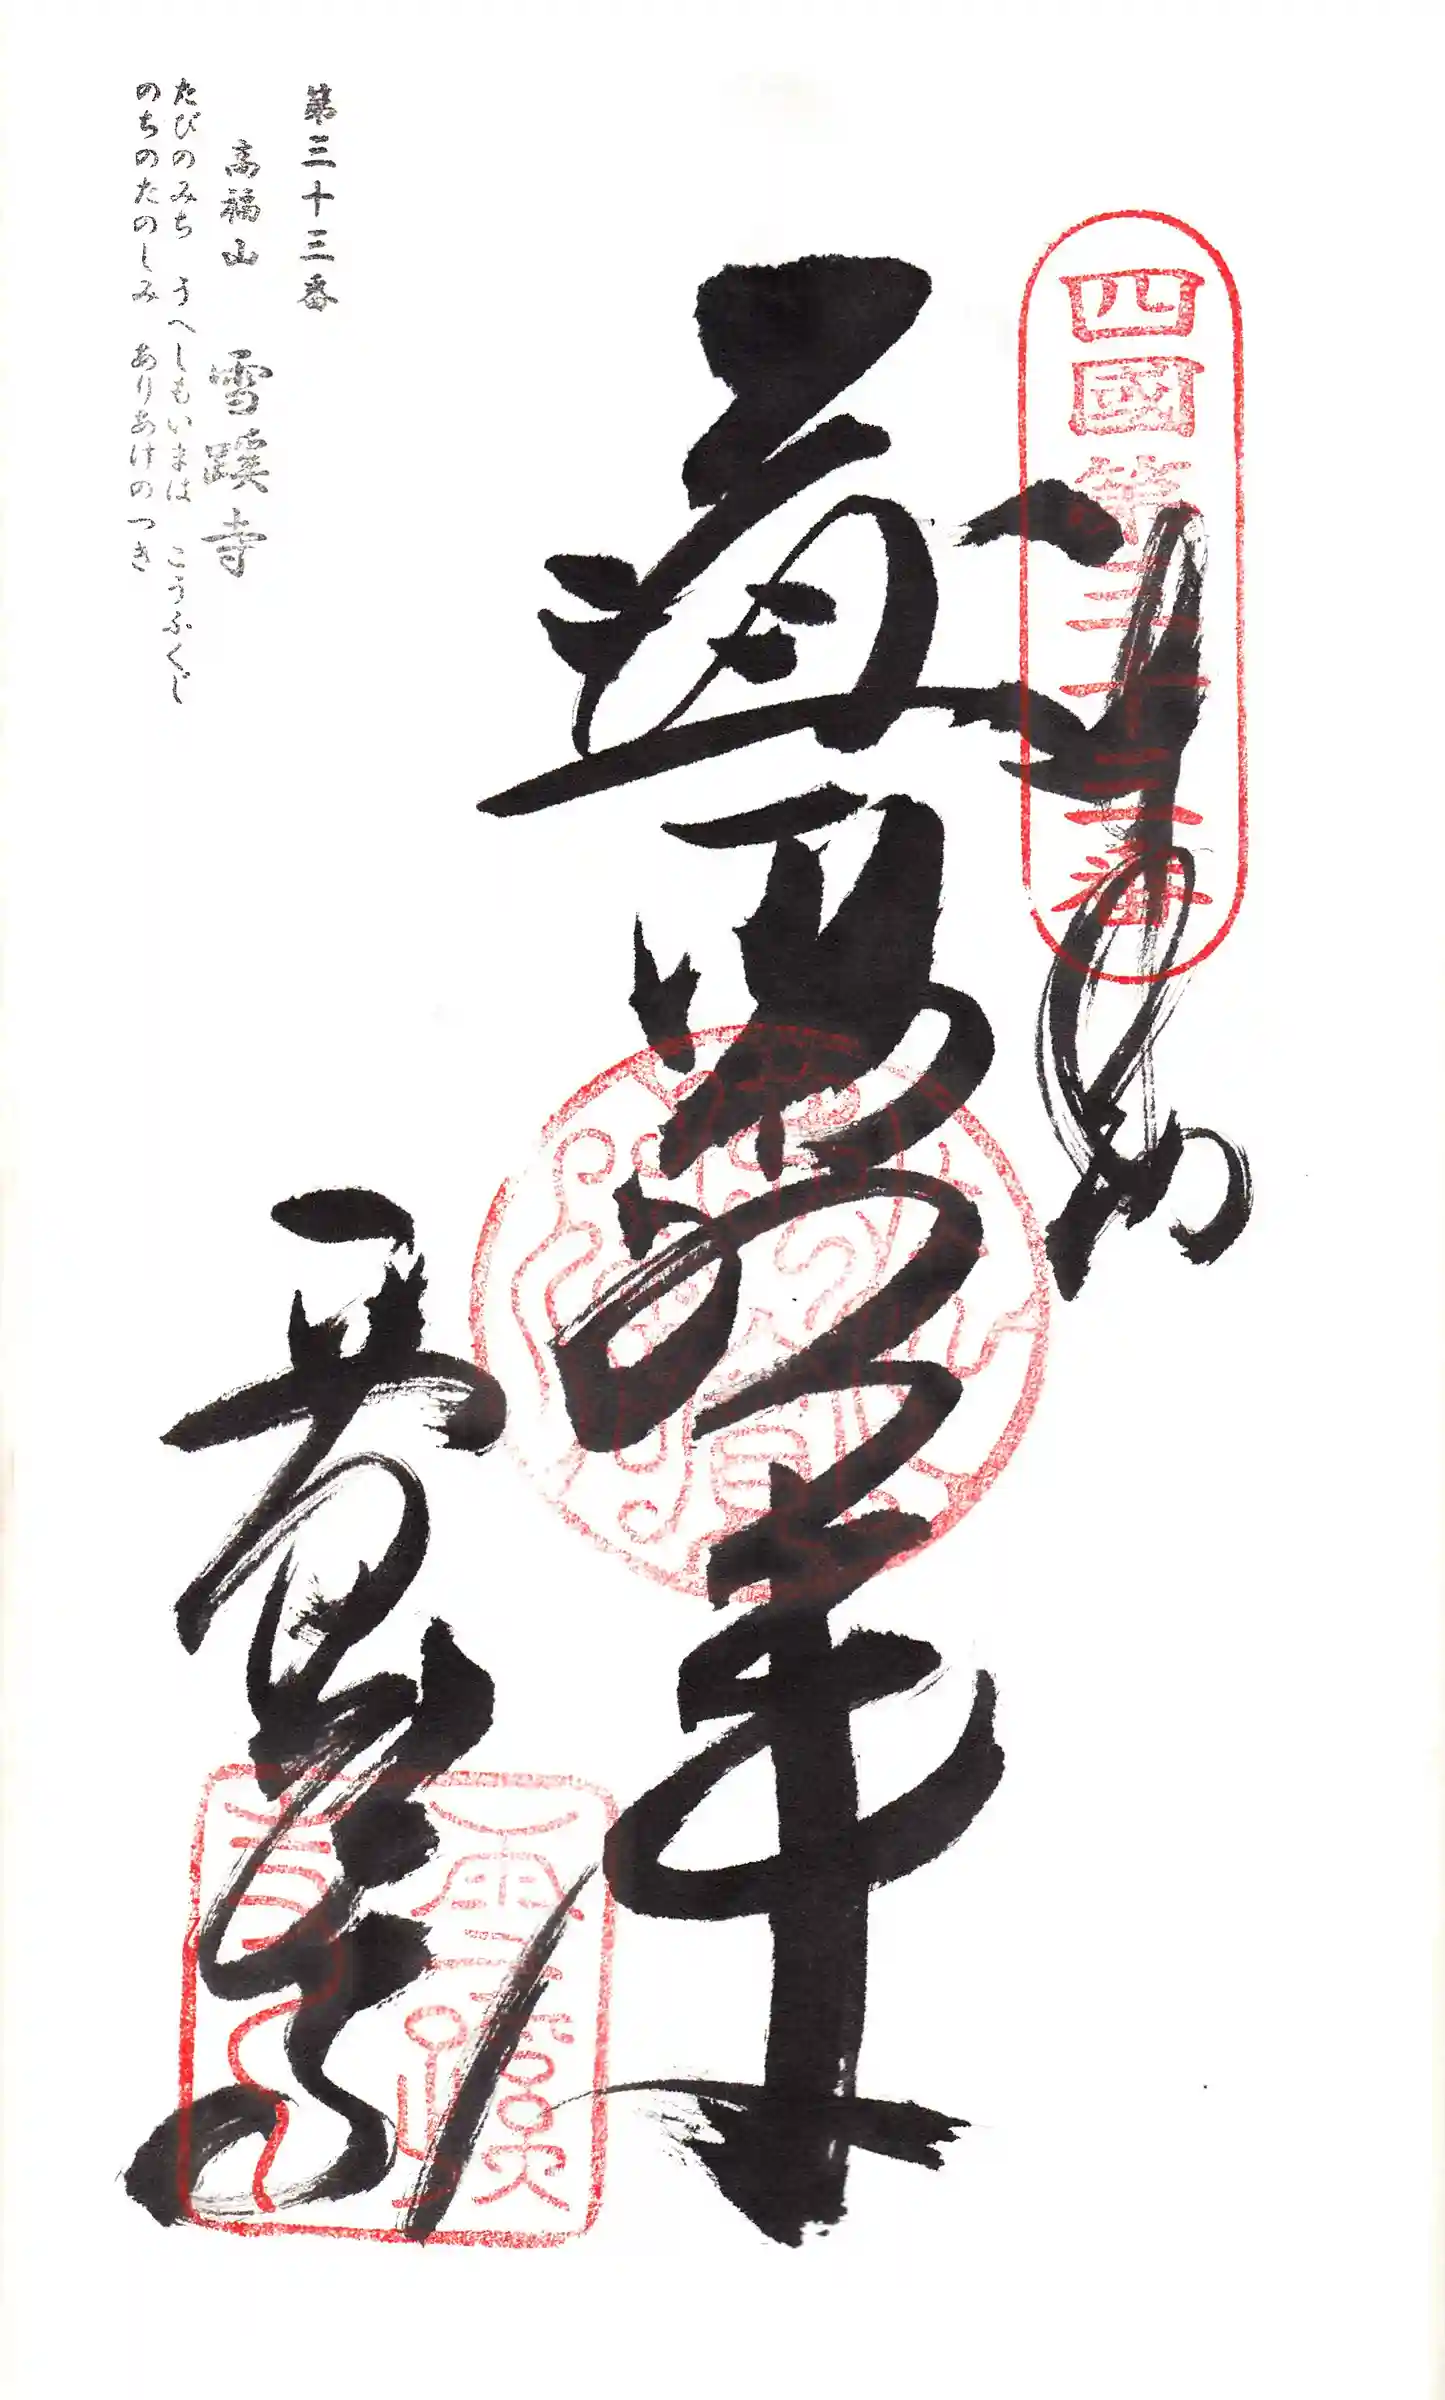 四國第三十三番
奉納
薬師如来
雪蹊寺
第三十三番
高福山 雪蹊寺
たびのみち うへしもいまは こうふくじ
のちのたのしみ ありあけのつき